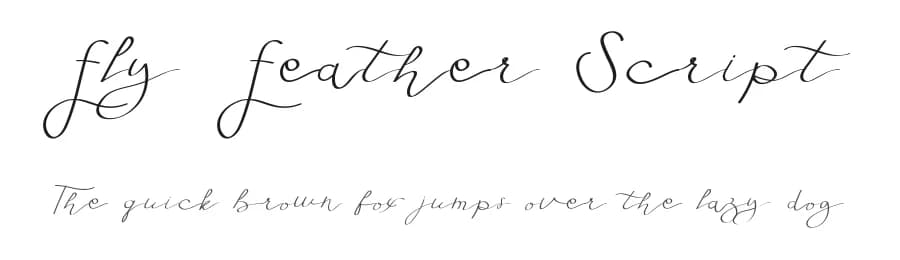 fly feather Script
The quick brown fox jumps over the lazy dog